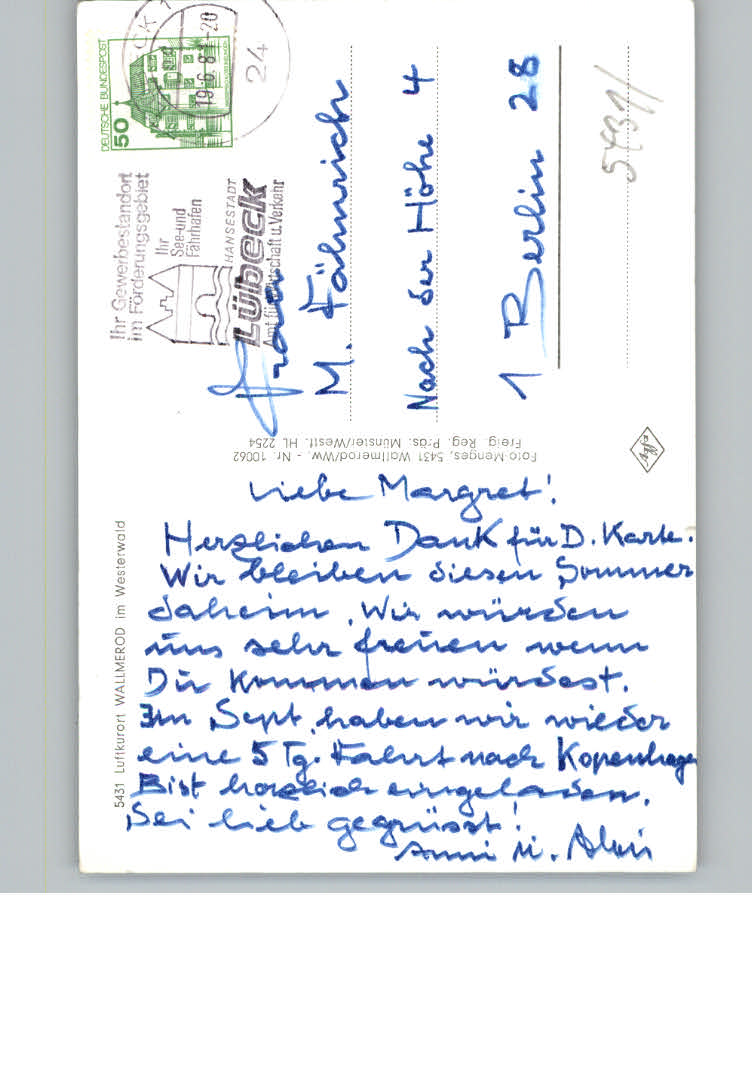 Liebe Margret!
Herzlichen Dank für D. Karte.
Wir bleiben diesen Sommer
daheim. Wir würden
uns sehr freuen wenn
Du kommen würdest.
Im Sept. haben wir wieder
eine 5 Tg. Fahrt nach Kopenhage
Bist herzlich eingeladen.
Sei lieb gegrüsst!
Anni u. Alois
5431 Luftkurort WALLMEROD im Westerwald
Foto-Menges, 5431 Wallmerod/Ww. - Nr. 10062
Freig. Reg. Präs. Münster/Westf. HL 2254
DEUTSCHE BUNDESPOST
50
19.6.8 -20
24
Ihr Gewerbestandort
im Förderungsgebiet
Ihr
See-und
Fährhafen
HANSESTADT
Lübeck
Amt für Wirtschaft u. Verkehr
Frau
M. Fähnrich
Nach der Höhe 4
1 Berlin 28
5431/